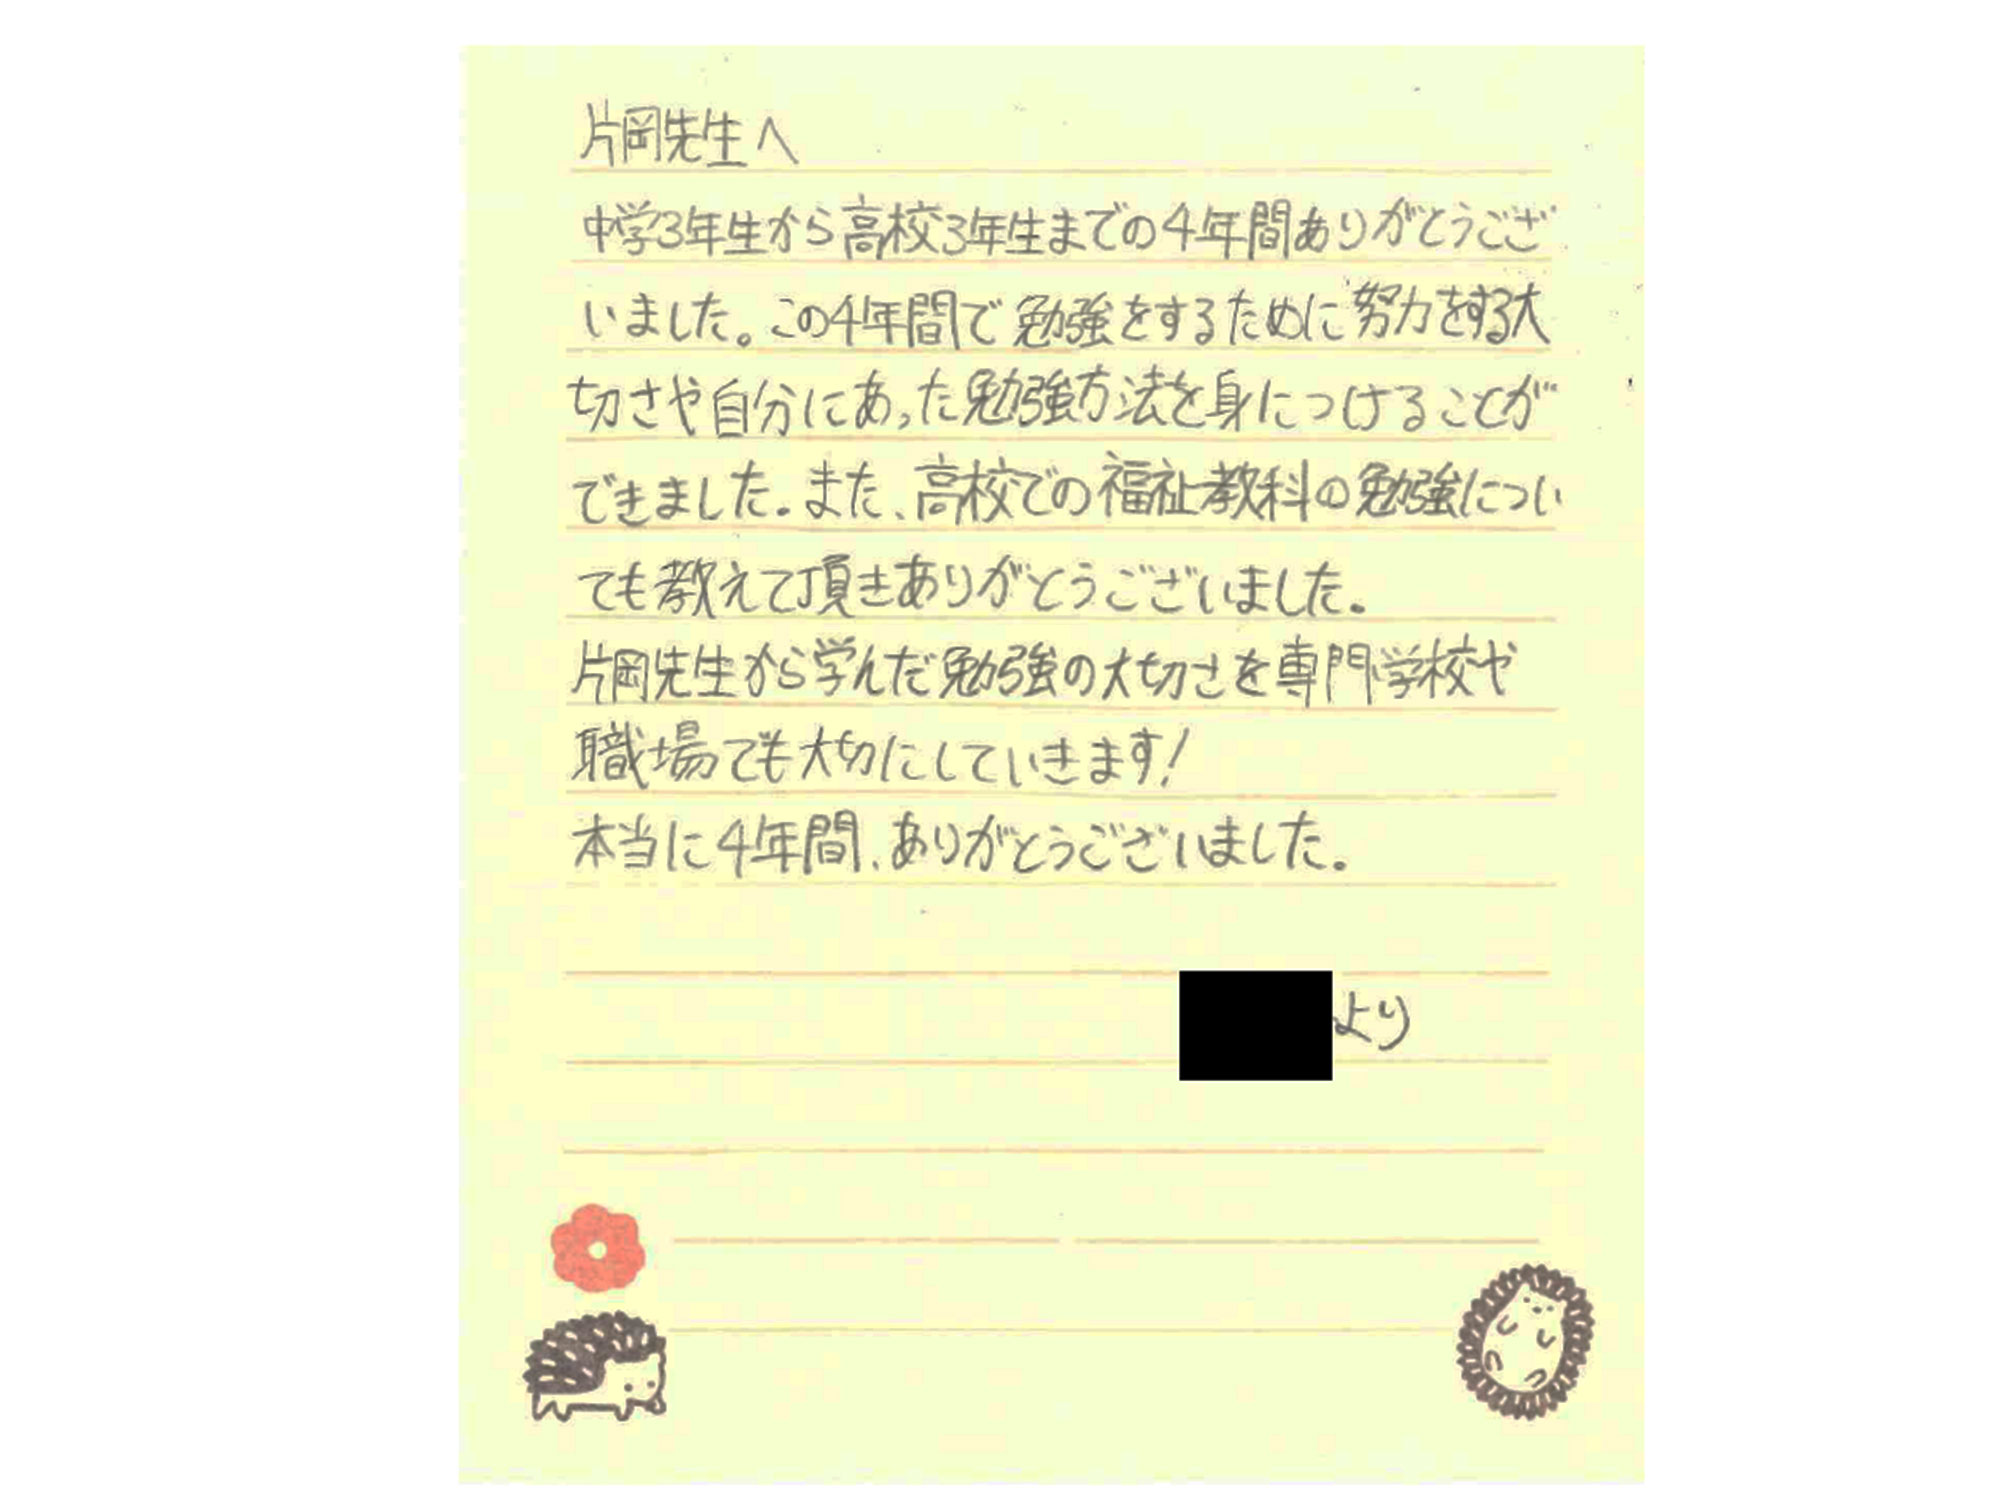 片岡先生へ
中学3年生から高校3年生までの4年間ありがとうござ
いました。この4年間で勉強をするために努力をする大
切さや自分にあった勉強方法を身につけることが
できました。また、高校での福祉教科の勉強につい
ても教えて頂きありがとうございました。
片岡先生から学んだ勉強の大切さを専門学校や
職場でも大切にしていきます!
本当に4年間、ありがとうございました。
より